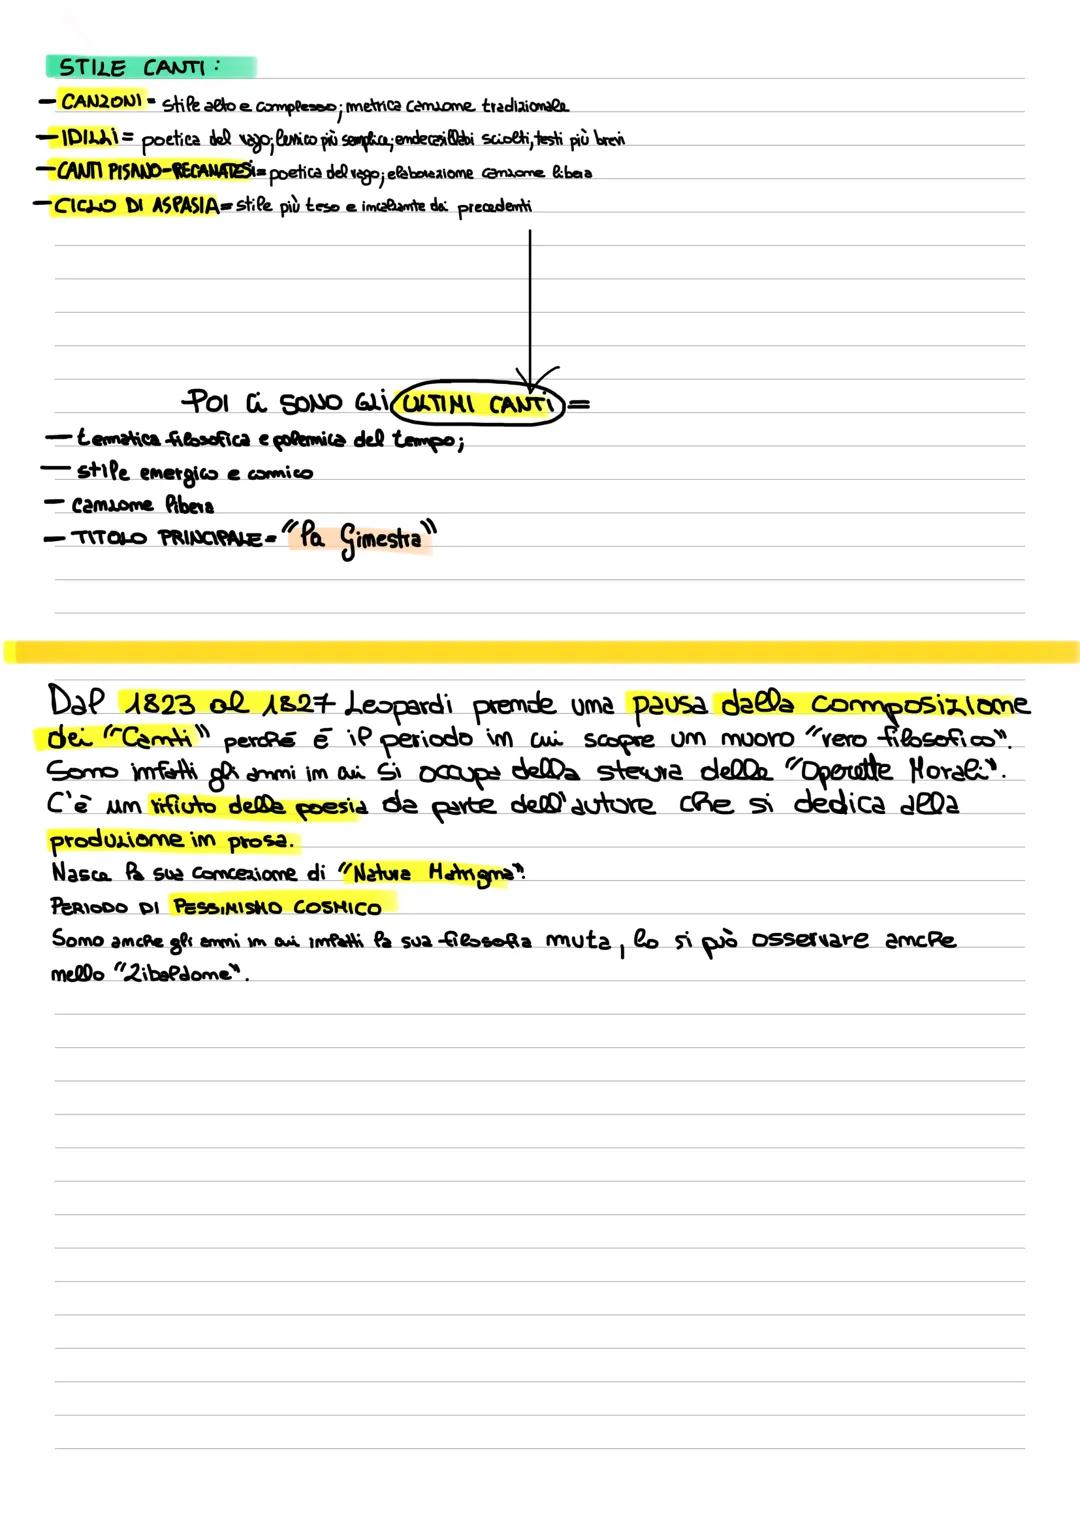 STILE CANTI:
- CANZONI = stile alto e complesso; metrica canzone tradizionale
- IDILLI = poetica del vago; lessico più semplice; endecasillabi sciolti, testi più brevi
- CANTI PISANO-RECANATESI = poetica del vago; elaborazione canzone libera
- CICLO DI ASPASIA = stile più teso e incalzante dei precedenti
POI CI SONO GLI ULTIMI CANTI =
- tematica filosofica e polemica del tempo;
- stile energico e comico
- canzone libera
- TITOLO PRINCIPALE = "la Ginestra"
Dal 1823 al 1827 Leopardi prende una pausa dalla composizione
dei "Canti" perché é il periodo in cui scopre un nuovo "vero filosofico".
Sono infatti gli anni in cui si occupa della stesura delle "Operette Morali".
C'è un rifiuto della poesia da parte dell'autore che si dedica alla
produzione in prosa.
Nasce la sua concezione di "Natura Matrigna".
PERIODO DI PESSIMISMO COSMICO
Sono anche gli anni in cui infatti la sua filosofia muta, lo si può osservare anche
nello "Zibaldone".